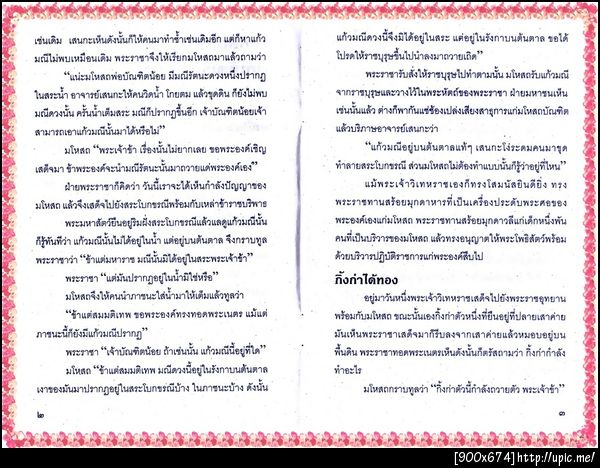 เช่นเดิม เสนกะเห็นดังนั้นก็ให้คนมาทำซ้ำเช่นเดิมอีก แต่ก็หาแก้ว
มณีไม่พบเหมือนเดิม พระราชาจึงให้เรียกมโหสถมาแล้วถามว่า
“แน่ะมโหสถพ่อบัณฑิตน้อย มีมณีรัตนะดวงหนึ่งปรากฏ
ในสระน้ำ อาจารย์เสนกะให้คนวิดน้ำ โกยตม แล้วขุดดิน ก็ยังไม่พบ
มณีดวงนั้น ครั้นน้ำเต็มสระ มณีก็ปรากฏขึ้นอีก เจ้าบัณฑิตน้อยเจ้า
สามารถเอาแก้วมณีนั้นมาได้หรือไม่”
มโหสถ “พระเจ้าข้า เรื่องนั้นไม่ยากเลย ขอพระองค์เชิญ
เสด็จมา ข้าพระองค์จะนำมณีรัตนะนั้นมาถวายแด่พระองค์เอง”
ฝ่ายพระราชาก็คิดว่า วันนี้เราจะได้เห็นกำลังปัญญาของ
มโหสถ แล้วจึงเสด็จไปยังสระโบกขรณีพร้อมกับเหล่าข้าราชบริพาร
พระมหาสัตว์ยืนอยู่ริมฝั่งสระโบกขรณีแล้วแลดูแก้วมณีนั้น
ก็รู้ทันทีว่า แก้วมณีนั้นไม่ได้อยู่ในน้ำ แต่อยู่บนต้นตาล จึงกราบทูล
พระราชาว่า “ข้าแต่มหาราช มณีนั้นมิได้อยู่ในสระพระเจ้าข้า”
พระราชา “แต่มันปรากฏอยู่ในน้ำมิใช่หรือ”
มโหสถจึงให้คนนำภาชนะใส่น้ำมาให้เต็มแล้วทูลว่า
“ข้าแต่สมมติเทพ ขอพระองค์ทรงทอดพระเนตร แม้แต่
ภาชนะนี้ก็ยังมีแก้วมณีปรากฏ”
พระราชา “เจ้าบัณฑิตน้อย ถ้าเช่นนั้น แก้วมณีนี้อยู่ที่ใด”
มโหสถ “ข้าแต่สมมติเทพ มณีดวงนี้อยู่ในรังกาบนต้นตาล
เงาของมันมาปรากฏอยู่ในสระโบกขรณีบ้าง ในภาชนะบ้าง ดังนั้น
๒
แก้วมณีดวงนี้จึงมิได้อยู่ในสระ แต่อยู่ในรังกาบนต้นตาล ขอได้
โปรดให้ราชบุรุษขึ้นไปนำลงมาถวายเถิด”
พระราชารับสั่งให้ราชบุรุษไปทำตามนั้น มโหสถรับแก้วมณี
จากราชบุรุษและวางไว้ในพระหัตถ์ของพระราชา ฝ่ายมหาชนเห็น
เช่นนั้นแล้ว ต่างก็พากันแซ่ซ้องเปล่งเสียงสาธุการแก่มโหสถบัณฑิต
แล้วบริภาษอาจารย์เสนกะว่า
“แก้วมณีอยู่บนต้นตาลแท้ๆ เสนกะโง่ระดมคนมาขุด
ทำลายสระโบกขรณี ส่วนมโหสถไม่ต้องทำแบบนั้นก็รู้ว่าอยู่ที่ไหน”
แม้พระเจ้าวิเทหราชเองก็ทรงโสมนัสยินดียิ่ง ทรง
พระราชทานสร้อยมุกดาหารที่เป็นเครื่องประดับพระศอของ
พระองค์เองแก่มโหสถ พระราชทานสร้อยมุกดาวลีแก่เด็กหนึ่งพัน
คนที่เป็นบริวารของมโหสถ แล้วทรงอนุญาตให้พระโพธิสัตว์พร้อม
ด้วยบริวารปฏิบัติราชการแก่พระองค์สืบไป
กิ้งก่าได้ทอง
อยู่มาวันหนึ่งพระเจ้าวิเทหราชเสด็จไปยังพระราชอุทยาน
พร้อมกับมโหสถ ขณะนั้นเองกิ้งก่าตัวหนึ่งที่ยืนอยู่ที่ปลายเสาค่าย
มันเห็นพระราชาเสด็จมาก็รีบลงจากเสาค่ายแล้วหมอบอยู่บน
พื้นดิน พระราชาทอดพระเนตรเห็นดังนั้นก็ตรัสถามว่า กิ้งก่ากำลัง
ทำอะไร
มโหสถกราบทูลว่า “กิ้งก่าตัวนี้กำลังถวายตัว พระเจ้าข้า”
๓
[900x674]http://upic.me/